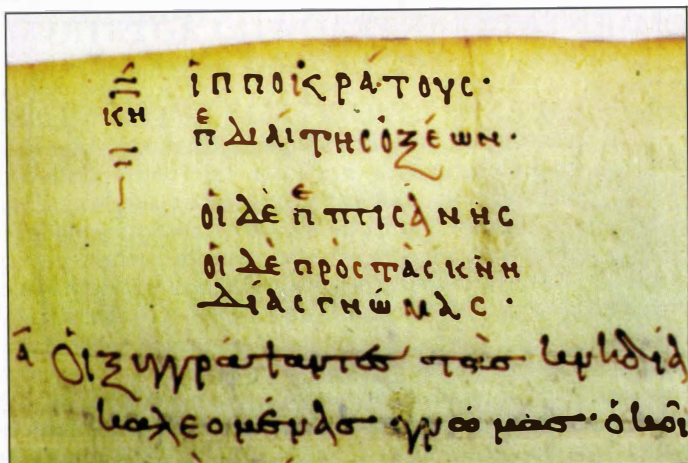 κη
ἱπποκράτους·
π^ε διαίτης ὀξέων·
οἱ δὲ π^ε πτισάνης
οἱ δὲ πρὸς τὰς κνη
δίας γνώμας·
ᾱ Οἱ ξυγγράψαντες τὰς κνιδίας
καλεομένας γνώμας· ὁκοῖ